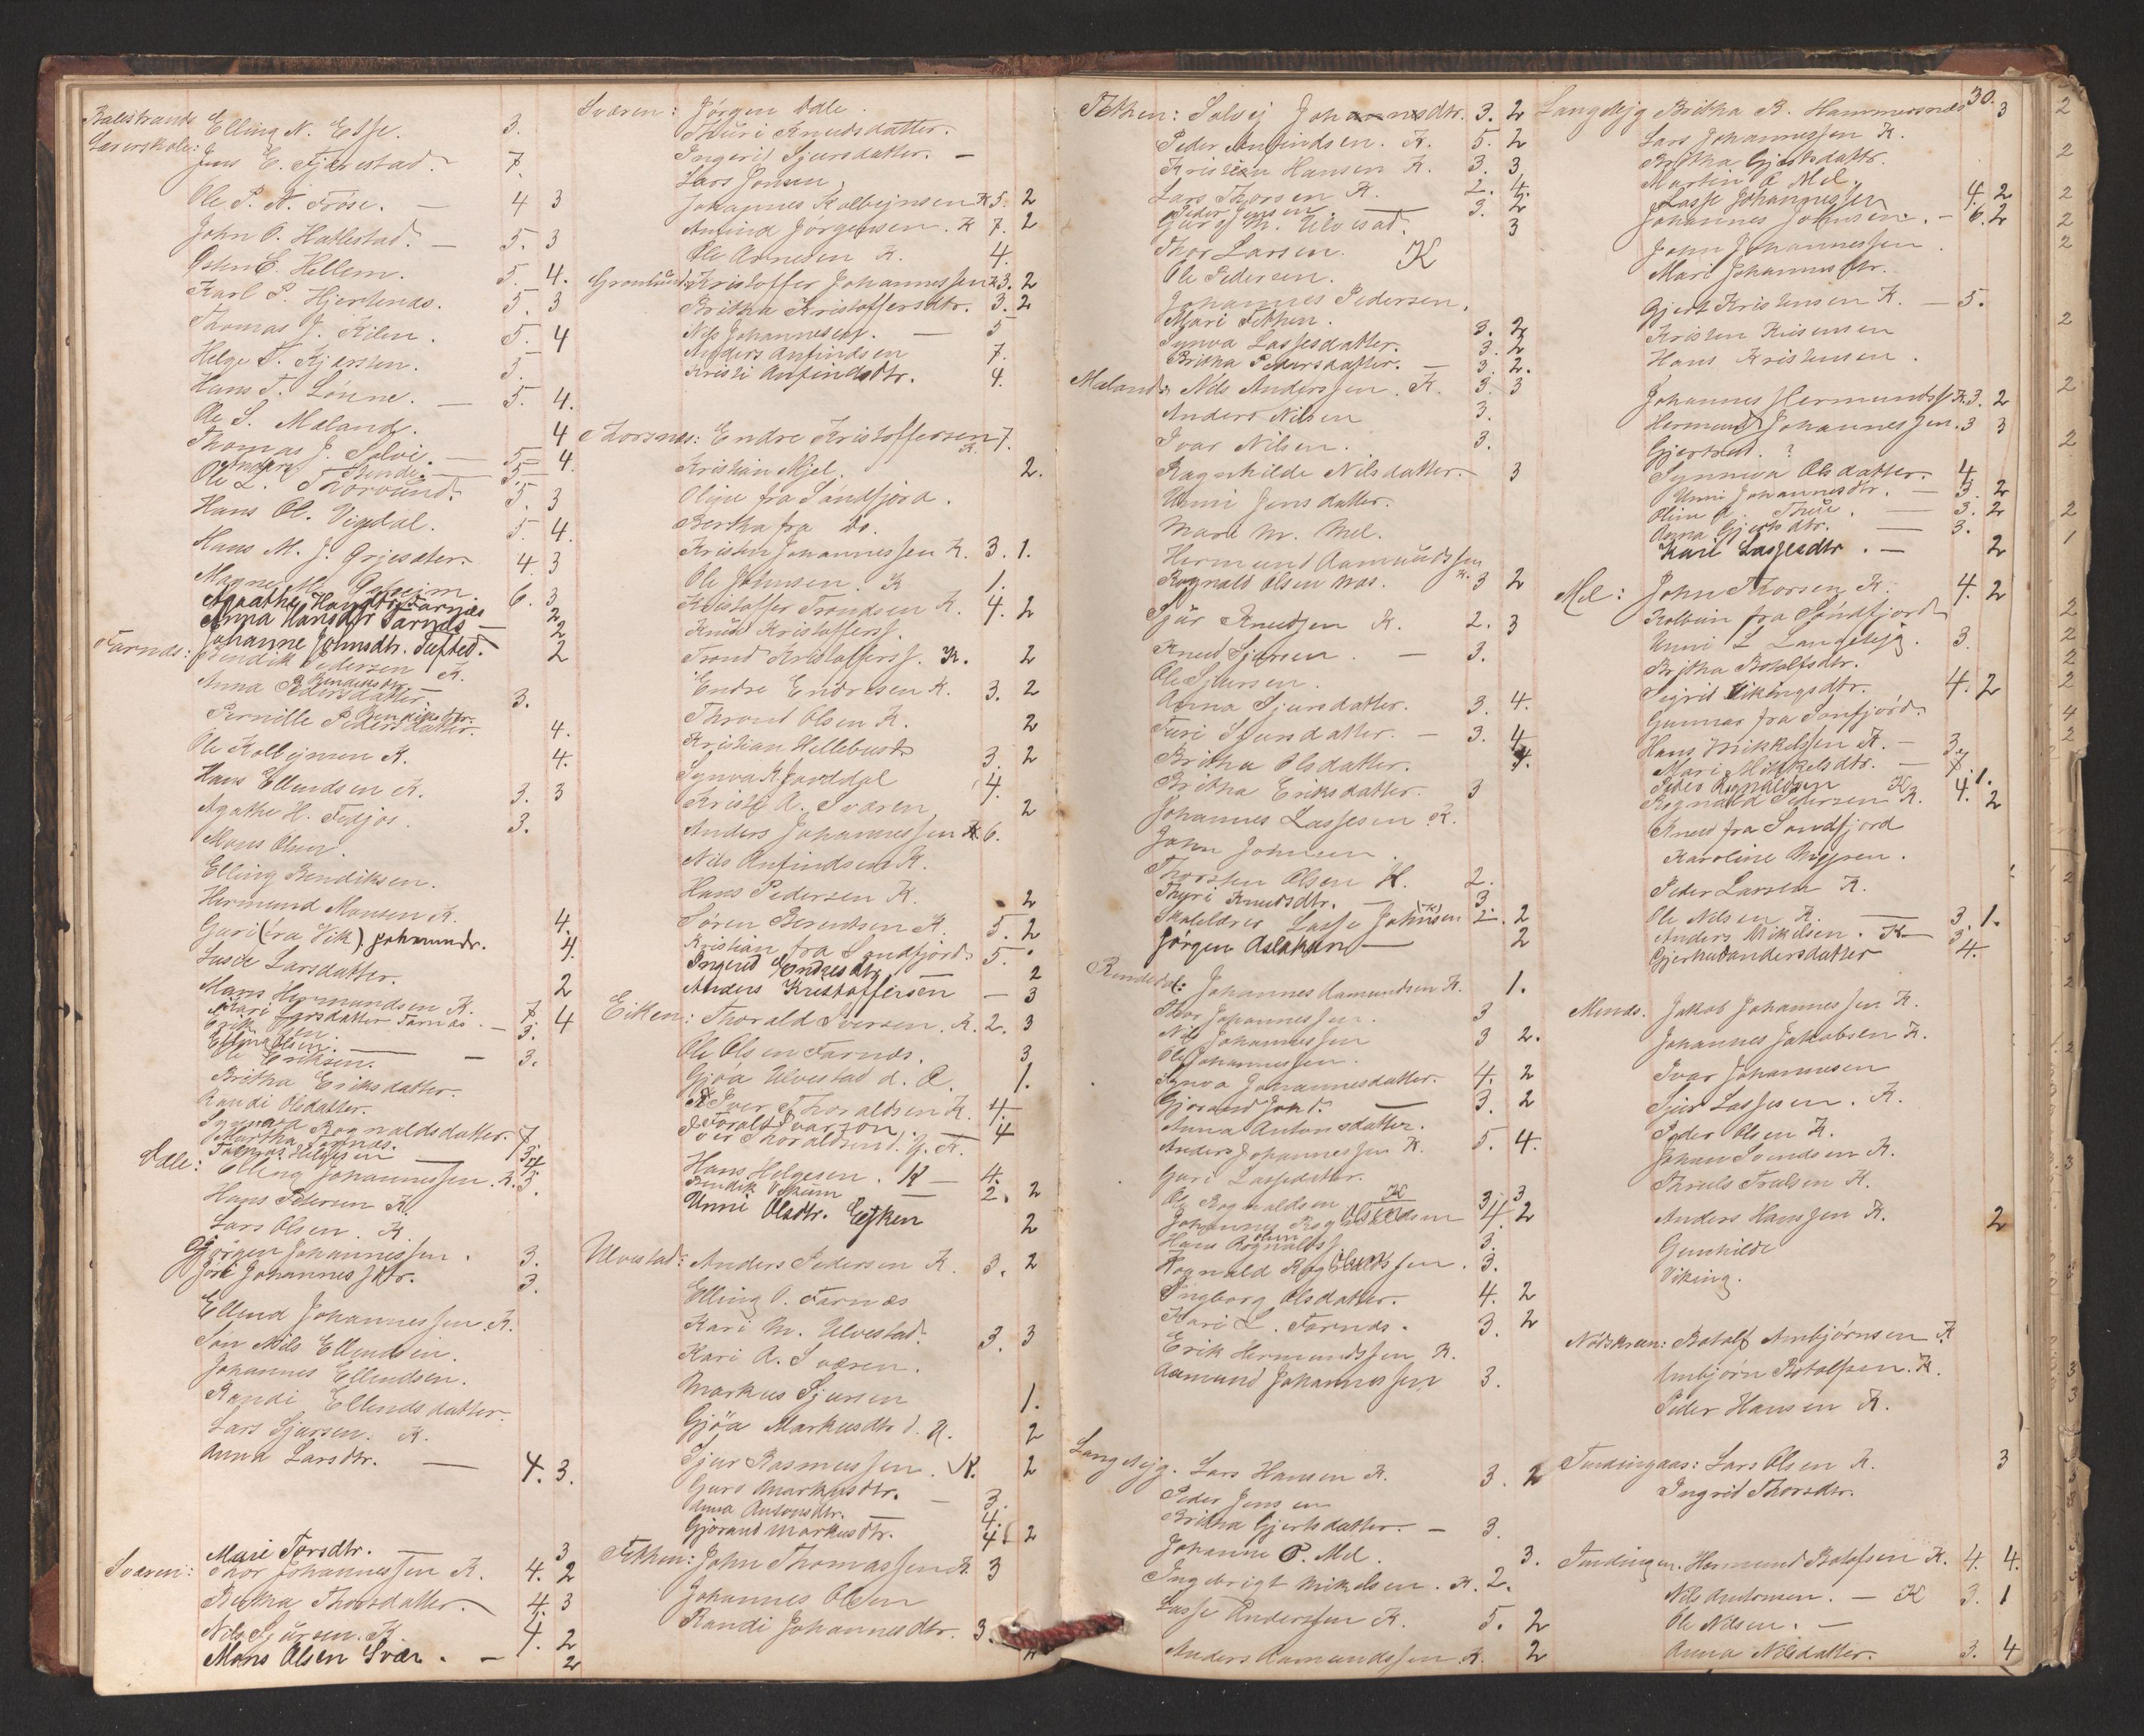 Balestrands Elling N. Esse. 3.
Lærerskole: Jens E. Fjærestad. 7.
Ole P. N. Frøse. — 4 3
John O. Hatlestad. — 5. 3
E. Hellem. 5. 4.
Karl P. Hjertenæs. 5. 3
Thomas J. Kilen. 5. 4
Helge T. Kjersten. 5.
Hans T. Lønne. — 5. 4.
Ole S. Mæland. 4
Thomas J. Solvi. — 5 4.
Ole L. Thorsund. 5. 3
Hans Ol. Vigdal. 5. 4.
Hans M. J. Grjesæter. 4. 3
6. 3
Agathe Farnæs 2
Anna Hansdtr Farnæs — 2
Johanne Johnsdtr. Tufted. 2
Farnæs: Bendik Pedersen K.
Bendiksdtr. —
Anna Pedersdatter. 3.
Bendiksdtr.
Pernille Pedersdatter. 4.
Ole Kolbejnsen K. 4.
Hans Ellendsen K. 3. 3
Agathe H. Fedjos. 3.
Mons Olsen.
Elling Bendiksen.
Hermund Monsen K. 4.
Guri (fra Vik). Johannsdr. 4.
Larsdatter. 2
Mons Hermundsen K. 7. 4
Kari Larsdatter Farnæs. — 3.
Erik Olsen.
Olsen. —
Ole Eriksen. — 3.
Britha Eriksdatter.
Randi Olsdatter.
Rognaldsdatter. 7
Martha Farnæs. 3.
Helgesen — 4.
Dale: Elling Johannessen. K. 3.
Hans Petersen K.
Lars Olsen. K.
Jørgen Johannessen. 3.
Johannesdtr. 3.
Ellend Johannessen. K.
Søn Nils Ellendsen.
Johannes Ellendsen.
Randi Ellendsdatter.
Lars Sjursen. K.
Anna Larsdtr. — 4. 3.
Mari Torsdtr. — 3
Sværen: Thor Johannessen K. 4. 2
Britha Thorsdatter. 4. 3
Nils Sjursen. K. 4. 2
Mons Olsen Svær. — 2
Sværen: Jørgen Dale.
Thuri Knudsdatter.
Ingerid Sjursdatter. —
Lars Jonsen,
Johannes Kolbejnsen K 5. 2
Anfind Jørgensen. K 7. 2
Ole Arnesen K. 4.
Kristoffer Johannessen K 3. 2
Britha Kristoffersdtr. 3. 2
Nils Johannesen. — 5
Anders Anfindsen 7.
Kristi Anfindsdtr. 4.
Thorsnes: Endre Kristoffersen K. 7.
Kristian Njel. 2.
Oline fra Søndfjord.
Bertha fra do.
Kristen Johannessen K. 3. 1.
Ole Johnsen. K 1.
Kristoffer Trondsen K. 4. 2
Knud Kristofferss.
Trond Kristofferss. K. 2
Endre Endresen K. 3. 2
Thrond Olsen K. 2
Kristian Hellebust 3. 2
Synva K. Jorddal 4.
Kristi A. Sværen 2
Anders Johannessen K 6.
Nils Anfindsen K.
Hans Pedersen K. 2
Søren Berentsen K. 5. 2
Kristian fra Søndfjord. 5.
Ingerid Endresdtr. 2
Anders Kristoffersen — 3
Eitken: Thorald Iversen. K. 2. 3
Ole Olsen Farnæs. 3
Gjøa Ulvestad d. Æ. 1.
Iver Thoraldsen K. 4.
Iver Thoraldsen d. Y. K. 4
Hans Helgesen. K — 4.
Bendik — 2. 2
Unni Olsdtr. Eitken 2
Ulvestad: Anders Pedersen K. 3. 2
Elling O. Farnæs
Kari M. Ulvestad. 3. 3
Kari A. Sværen.
Markus Sjursen 1.
Gjøa Markusdtr d. Y. 2
Sjur Rasmussen. K. 2
Guro Markusdtr. — 3.
Anna Antonsdtr. — 4.
Gjørand Markusdtr. 4. 2
Fetken: John Thomassen K. 3
Johannes Olsen
Randi Johannesdtr. 3.
Fetken: Solvej Johannsdtr. 3. 2
Peder Anfindsen. K. 5. 2
Kristian Hansen K. 3. 3
Lars Thorsen K. 2. 4.
Peder Jensen — 3. 2
M. Ulvestad. 3
Thor Larsen. K
Ole Pedersen.
Johannes Pedersen.
Mari Fetken.
Synva Lassesdatter. 3. 2
Britha Pedersdatter. — 3. 2.
Mæland: Nils Anderssen. K. 3. 3
Anders Nilsen 3.
Ivar Nilsen. 3.
Ragnhilde Nilsdatter. 3
Unni Jensdatter.
Mari M. Mel.
Hermund Aamundssen
Rognald Olsen Næs. K. 3 2
Sjur Knudsen K. 2. 3
Knud Sjursen. — 3.
Ole Sjursen.
Anna Sjursdatter. 3. 4.
Turi Sjursdatter. — 3. 4
Britha Olsdatter. 4.
Britha Eriksdatter. 3
Johannes Lassesen K.
John Johnsen.
Thorsten Olsen K. 2.
Thyri Knudsdtr. — 3.
Lasse Johnsen 2. 2
Jørgen Aslaksen — 2
Rendedal: Johannes Aamundsen K. 1.
Thor Johannessen. 3
Nils Johannessen 3 2.
Ole Johannessen.
Synva Johannesdatter. 4. 2
Gjørand Joh d. — 3. 2
Anna Antonsdatter.
Anders Johannessen K. 5. 4.
Guri Lassedatter.
Ole Rognaldsen K 3. 3
Johannes 4. 2
Hans Rognaldss. 3.
Rognald 3.
Ingborg Olsdatter. 4. 2
Kari L. Farnæs. 3. 2
Erik Hermundssen K.
Aamund Johannessen 3.
Langelejg. Lars Hansen K. 3. 2
Peder Jensen
Britha Gjertsdatter. — 3.
Johanne P. Mel. 3.
Ingebrigt Mikelsen. K. 2.
Lasse Anderssen K. 5. 2
Anders Aamundssen. K. 2
30.
Langelejg Britha B. Hammersnæs 3
Lars Johannessen K.
Britha Gjertsdattr.
Martin A Mel.
Lasse Johannessen 4. 2
Johannes Johnsen. — 6. 2
John Johannessen.
Mari Johannesdtr.
Gjert Kristensen K. — 5.
Kristen Kristensen
Hans Kristensen.
Johannes Hermundss K. 3. 2
Hermund Johannessen. 3 3
Gjertsdt. ?
Synneva Olsdatter. 4
Unni Johannesdtr. — 3. 2
Olina A. — 3. 2
Anna Gjertsdtr. — 3.
Kari Lassesdtr. — 2
Mel: John Thorsen K. 4. 2
Kolbein fra Søndfjord
Unni L Langelejg. 3.
Britha Botolfsdtr.
Sigrid Vikingsdtr. 4. 2
Gunnar fra Sønfjord.
Hans Mikkelssen K. — 3.
Mari Mikkelsdtr. — 7
Peder Rognaldsen K 1.
Rognald Pedersen K. 4. 2
Knud fra Søndfjord
Karoline Nigjren.
Peder Larsen K.
Ole Nilsen K. — 3. 1.
Anders Mikelsen. K 3.
Gjertrud andersdatter 4.
Menæs. Jakob Johannessen K.
Johannes Jakobsen K.
Ivar Johannesen
Sjur Lassesen. K.
Peder Olsen K.
Johan Svendsen K.
Thruls Trulsen K.
Anders Hanssen K. 2
Gunhilde
Viking.
Nødskreen: Botolf Ambjørnsen K
Ambjørn Botolfsen. K.
Peder Hansen K.
Tendingaas: Lars Olsen K. 3
Ingrid Thorsdtr.
Tendingen. Hermund Botolfsen K. 4. 4.
Nils Andersen. — K 3. 1
Ole Nilsen. —
Anna Nilsdatter. 3. 4